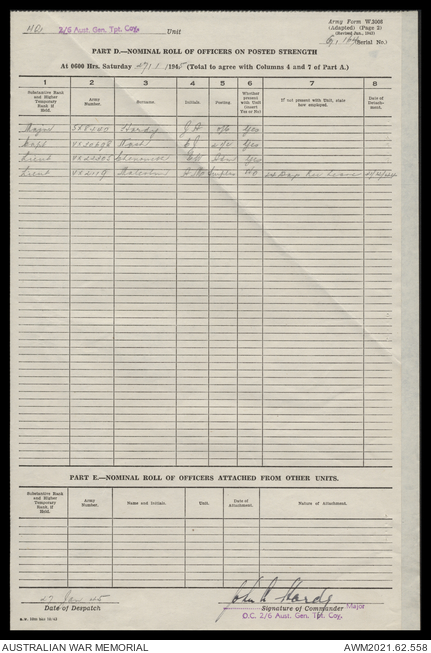 HQ. 2/6 Aust. Gen. Tpt. Coy. Unit
Army Form W.3008
(Adapted) (Page 2)
(Revised Jan., 1943)
(Serial No.)
PART D.—NOMINAL ROLL OF OFFICERS ON POSTED STRENGTH
At 0600 Hrs. Saturday 27/1/1945 (Total to agree with Columns 4 and 7 of Part A.)
1 2 3 4 5 6 7 8
Substantive Rank and Higher Temporary Rank if Held. Army Number. Surname. Initials. Posting. Whether present with Unit (insert Yes or No) If not present with Unit, state how employed. Date of Detachment.
Major Hardy J.A. O/C Yes
Capt Yes
Lieut Yes
Lieut Malcolm No 24 Days Rec Leave
PART E.—NOMINAL ROLL OF OFFICERS ATTACHED FROM OTHER UNITS.
Substantive Rank and Higher Temporary Rank, if Held. Army Number. Name and Initials. Unit. Date of Attachment. Nature of Attachment.
27 Jan 45
Date of Despatch
John A Hardy Major
Signature of Commander
O.C. 2/6 Aust. Gen. Tpt. Coy.
AUSTRALIAN WAR MEMORIAL AWM2021.62.558